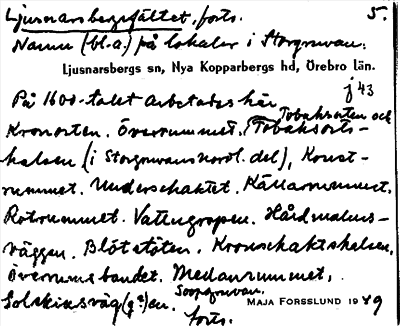 Ljusnarsbergsfältet, forts. 5.
Namn (bl.a.) på lokaler i Storgruvan.
Ljusnarsbergs sn, Nya Kopparbergs hd, Örebro län.
j 43
På 1600-talet arbetades här
Tobaksorten och
Kronorten. Överrummet. (Tobaksorts-
halsen (i Storgruvans nordl. del), Konst-
rummet. Underschaktet. Källarrummet.
Rotrummet. Vattengropen. Hårdmalms-
väggen. Blötstöten. Kronschaktshalsen,
Överrumsbandet. Mellanrummet,
Soopgruvan.
Solskensväg(g?)en.
MAJA FORSSLUND 1949
forts.